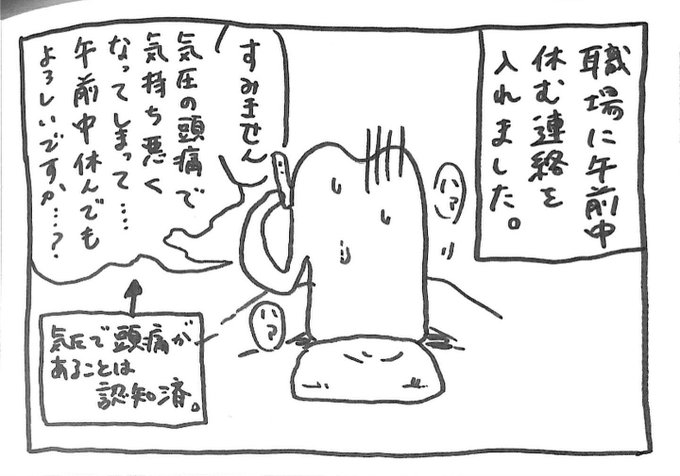 職場に午前中
休む連絡を
入れました。
すみません
気圧の頭痛で
気持ち悪く
なってしまって…
午前中休んでも
よろしいですか…?
ハァ
ハァ
気圧で頭痛が
あることは
認知済。